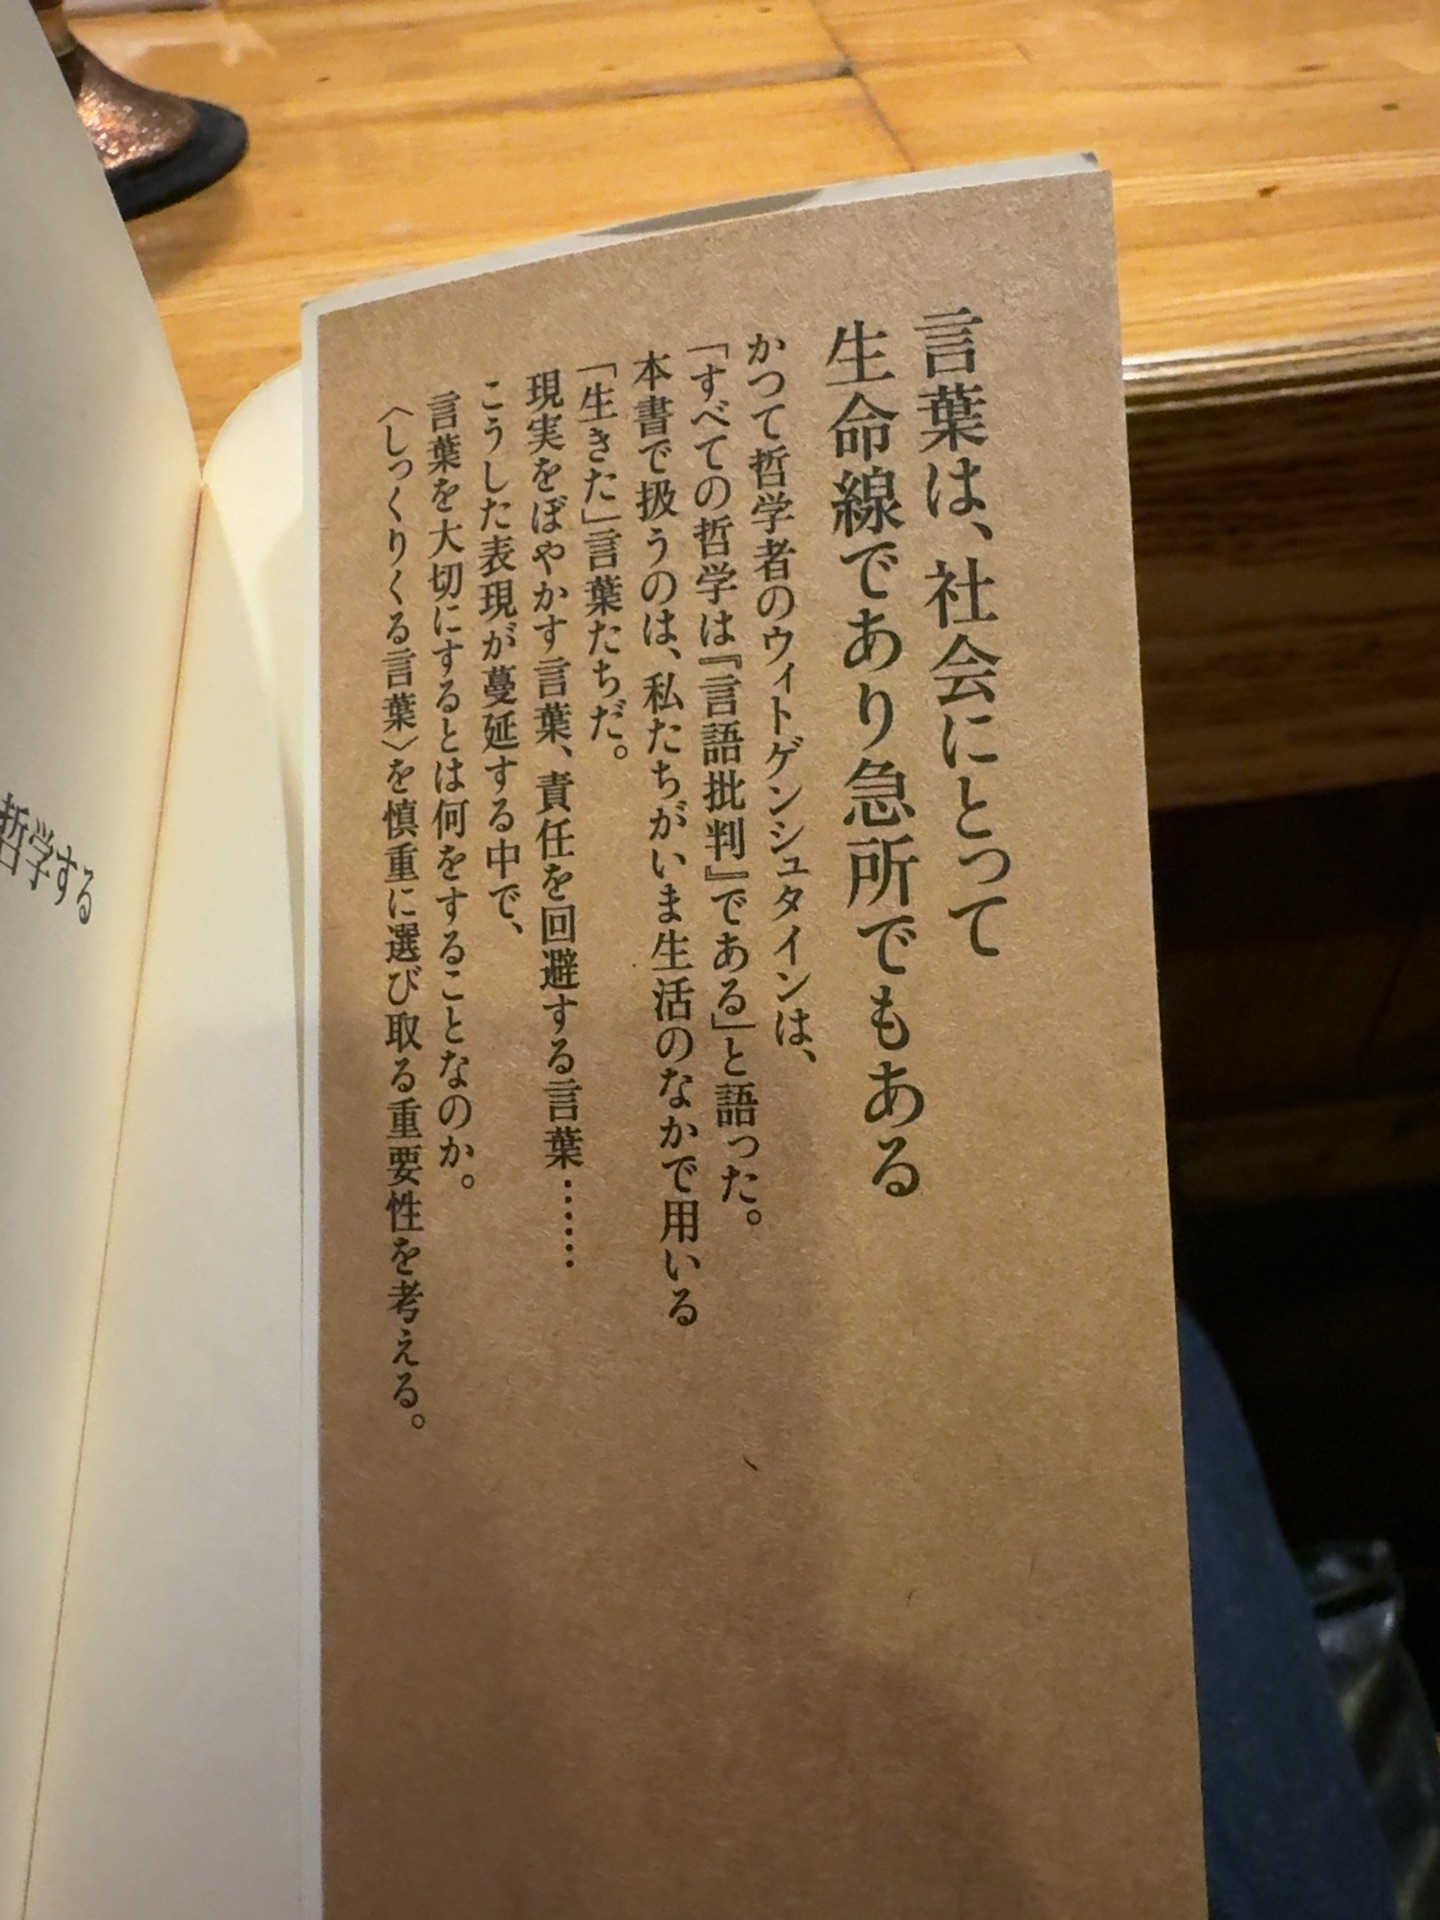 言葉は、社会にとって
生命線であり急所でもある
かつて哲学者のウィトゲンシュタインは、
「すべての哲学は『言語批判』である」と語った。
本書で扱うのは、私たちがいま生活のなかで用いる
「生きた」言葉たちだ。
現実をぼやかす言葉、責任を回避する言葉……
こうした表現が蔓延する中で、
言葉を大切にするとは何をすることなのか。
〈しっくりくる言葉〉を慎重に選び取る重要性を考える。
哲学する